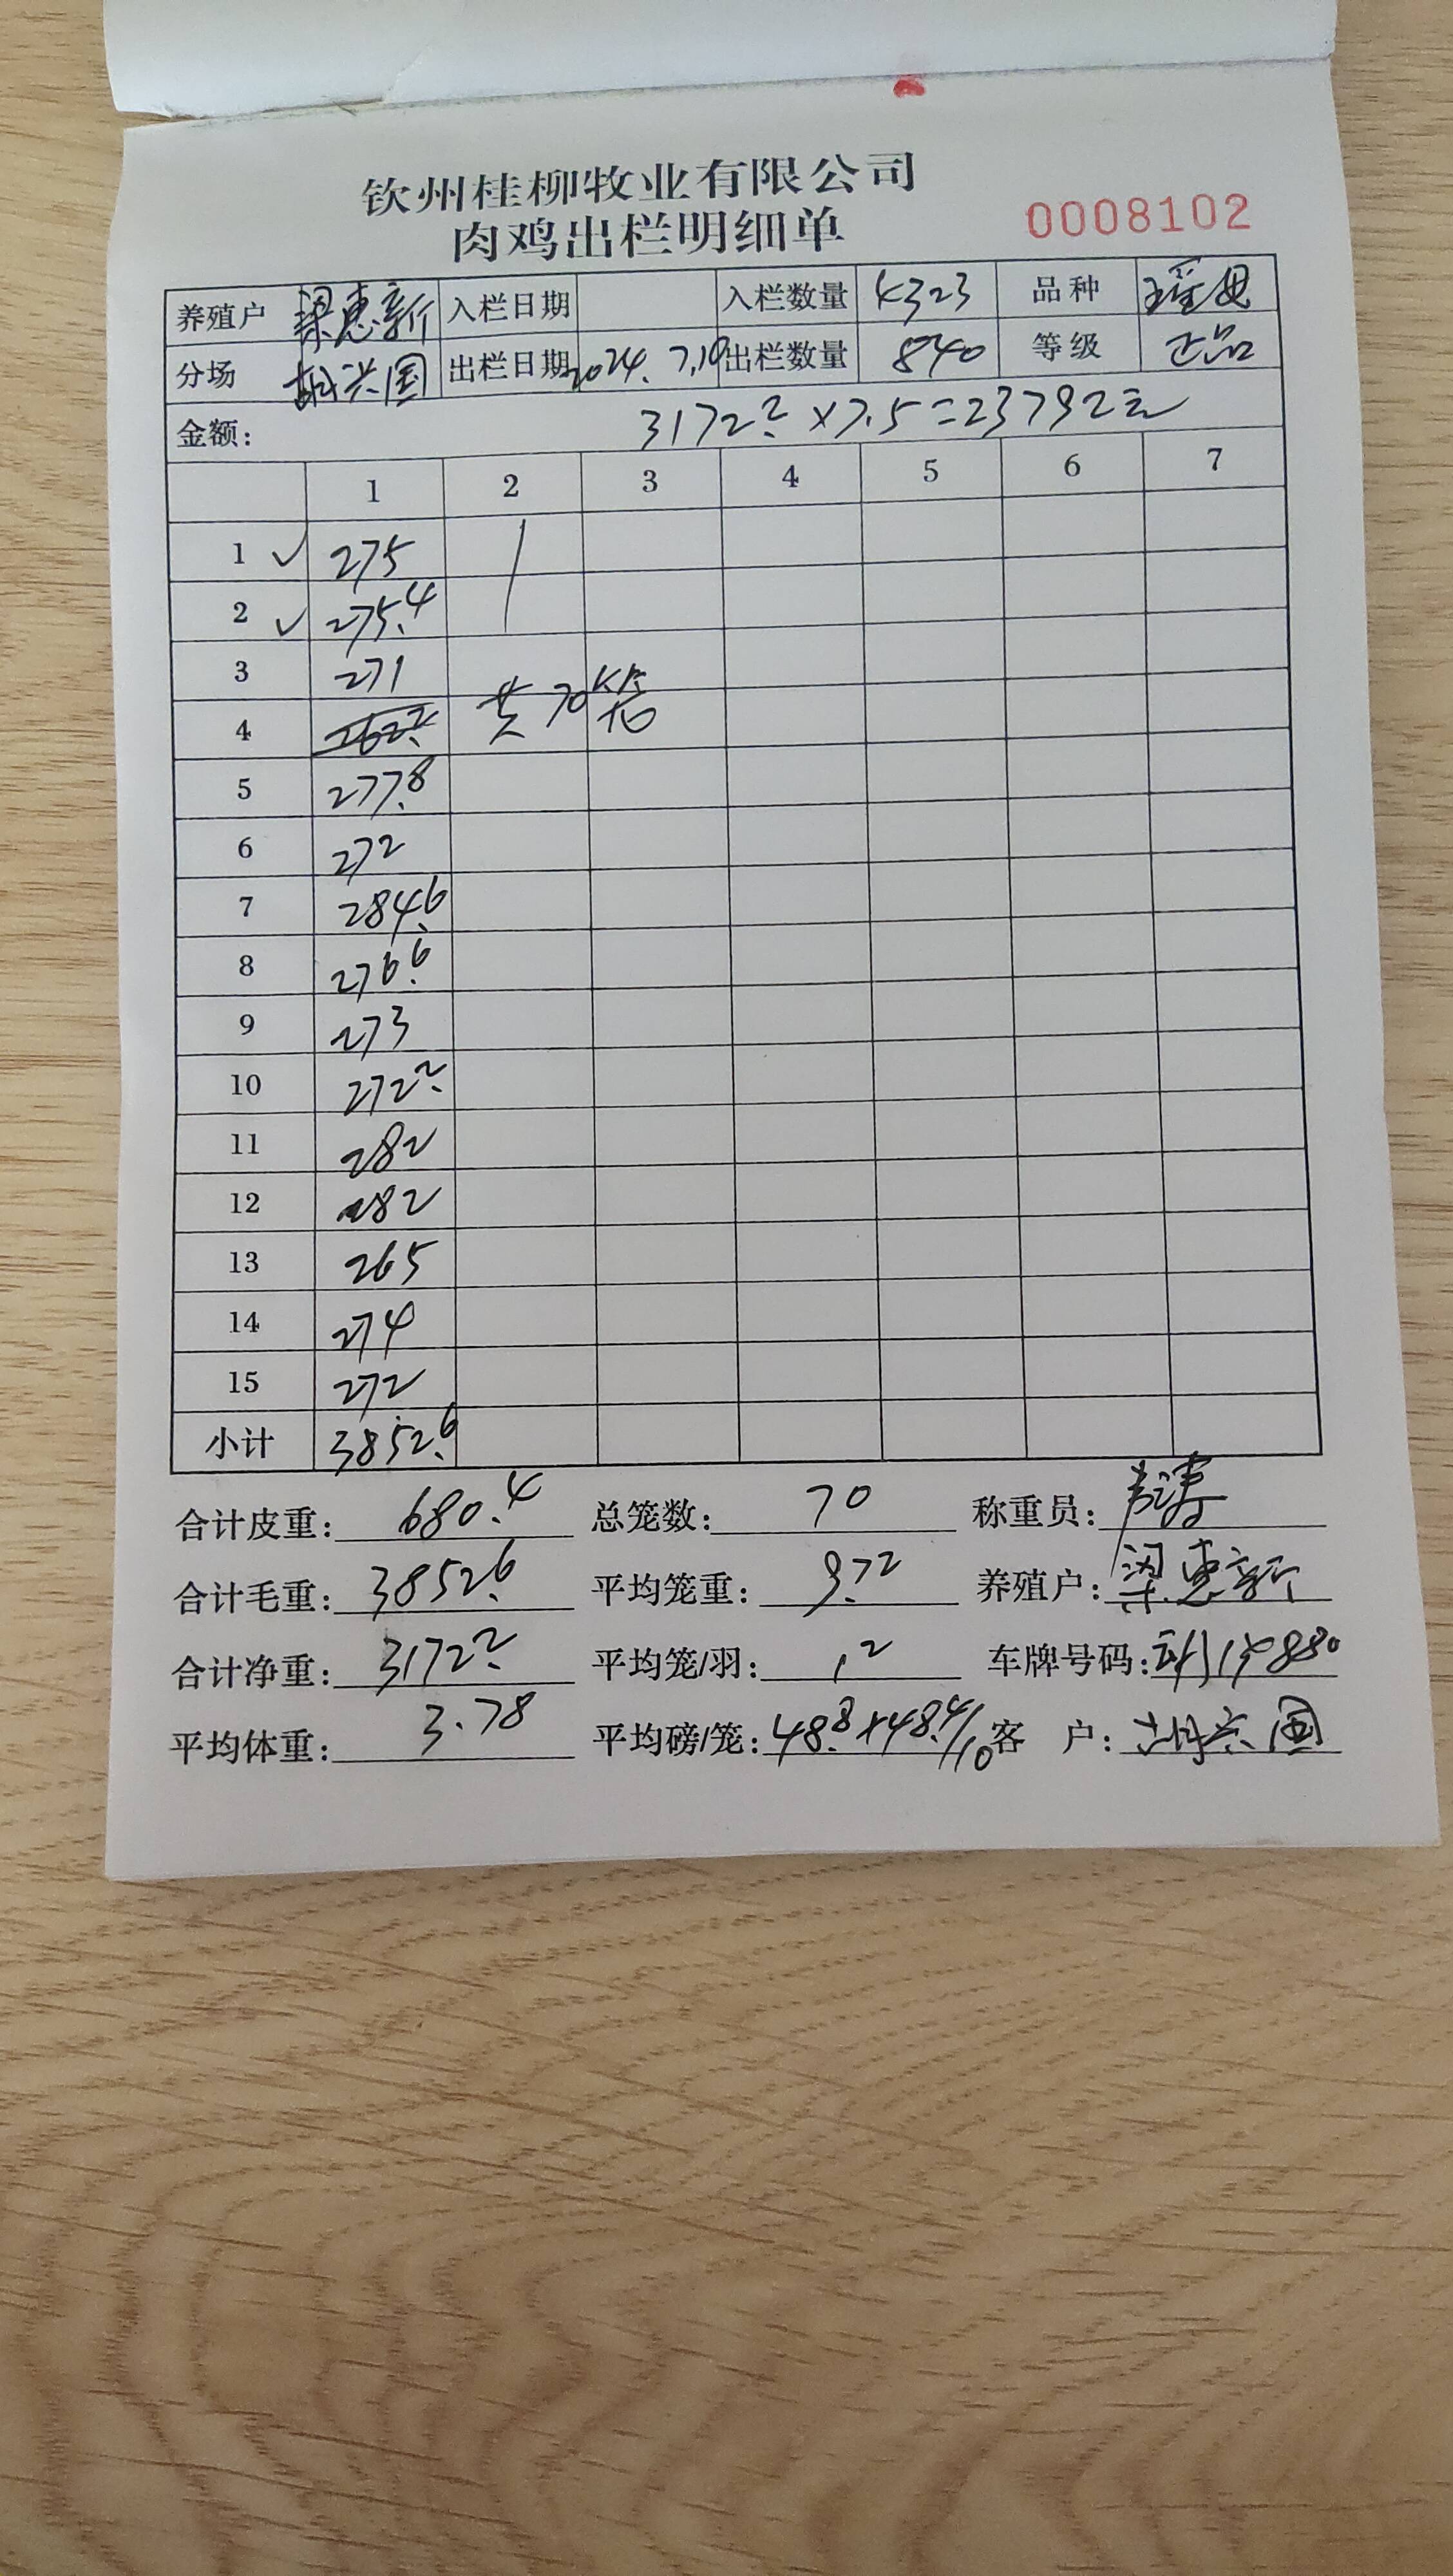 钦州桂柳牧业有限公司
肉鸡出栏明细单
0008102
养殖户 梁惠新 入栏日期 入栏数量 4323 品种 瑶鸡
分场 胡兴国 出栏日期 2024.7.19 出栏数量 840 等级 正品
金额: 3172.2×7.5=23792元
1 2 3 4 5 6 7
1 ✓ 275
2 ✓ 275.4
3 271
4 262.2 共70笼
5 277.8
6 272
7 284.6
8 276.6
9 273
10 272.2
11 282
12 282
13 265
14 274
15 272
小计 3852.6
合计皮重: 680.4 总笼数: 70 称重员:
合计毛重: 3852.6 平均笼重: 9.72 养殖户: 梁惠新
合计净重: 3172.2 平均笼/羽: 12 车牌号码:
平均体重: 3.78 平均磅/笼: 48.8+48.4/10 客 户: 胡兴国